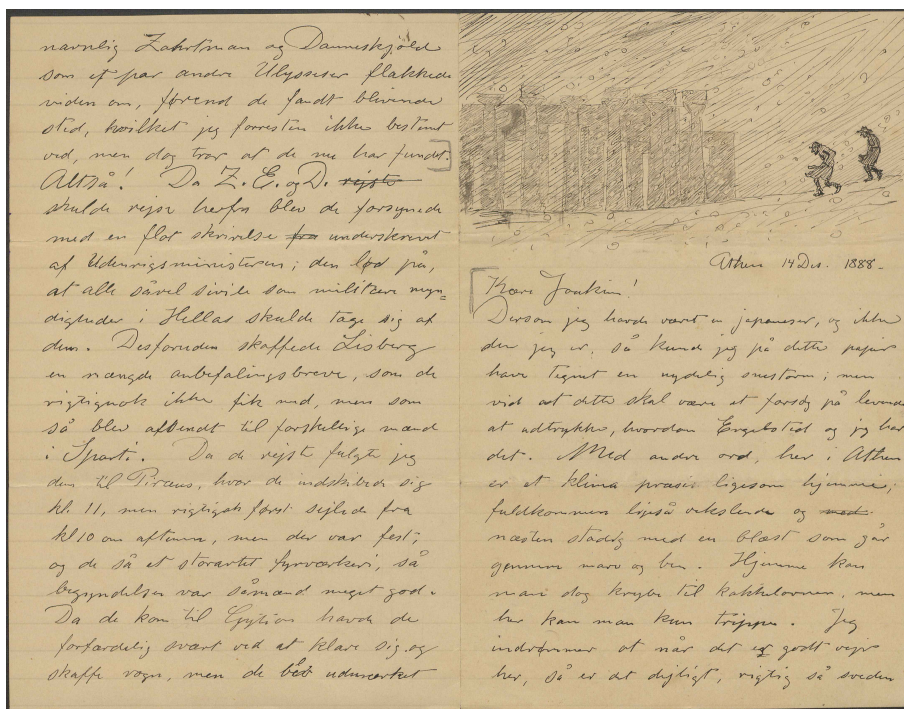 navnlig Zahrtman og Danneskjold
som et par andre Ulysseser flakkede
viden om, førend de fandt blivende
sted, hvilket jeg forresten ikke bestemt
ved, men dog tror at de nu har fundet.
Altså! Da Z. E. og D. rejste
skulde rejse herfra blev de forsynede
med en flot skrivelse fra underskrevet
af Udenrigsministeren; den lød på,
at alle såvel sivile som militære myn=
digheder i Hellas skulde tage sig af
dem. Desforuden skaffede Lisberg
en mængde anbefalingsbreve, som de
rigtignok ikke fik med, men som
så blev afsendt til forskellige mænd
i Sparti. Da de rejste fulgte jeg
dem til Piræus, hvor de indskibede sig
kl. 11, men rigtignok først sejlede fra
kl 10 om aftenen, men der var fest,
og de så et storartet fyrværkeri, så
begyndelsen var såmænd meget god.
Da de kom til Gytion havde de
forfærdelig svært ved at klare sig og
skaffe vogn, men de blev udmærket
Athen 14 Des. 1888.
Kære Joakim!
Dersom jeg havde vært en japaneser, og ikke
den jeg er, så kunde jeg på dette papir
have tegnet en nydelig snestorm; men
vid at dette skal være et forsøg på levende
at udtrykke, hvordan Engelsted og jeg har
det. Med andre ord, her i Athen
er et klima præsis ligesom hjemme;
fuldkommen ligeså vekslende og med
næsten stadig med en blæst som går
gennem marv og ben. Hjemme kan
man dog krybe til kakkelovnen, men
her kan man kun trippe. Jeg
indrømmer at når det er godt vejr
her, så er det dejligt, rigtig så sveden